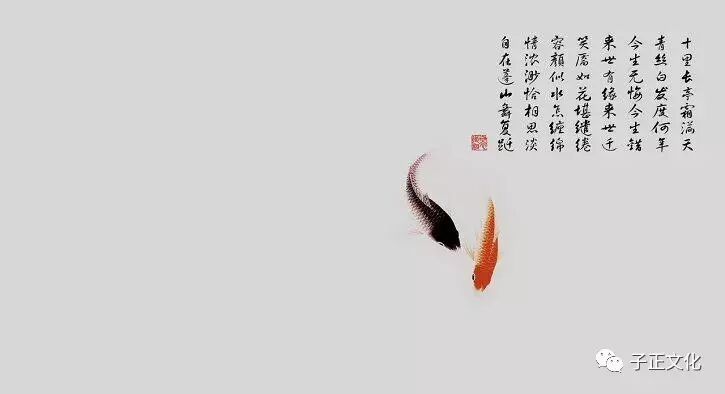 十里长亭霜满天
青丝白发度何年
今生无悔今生错
来世有缘来世迁
笑靥如花堪缱绻
容颜似水怎缠绵
情浓渺恰相思淡
自在蓬山舞复跹
子正文化